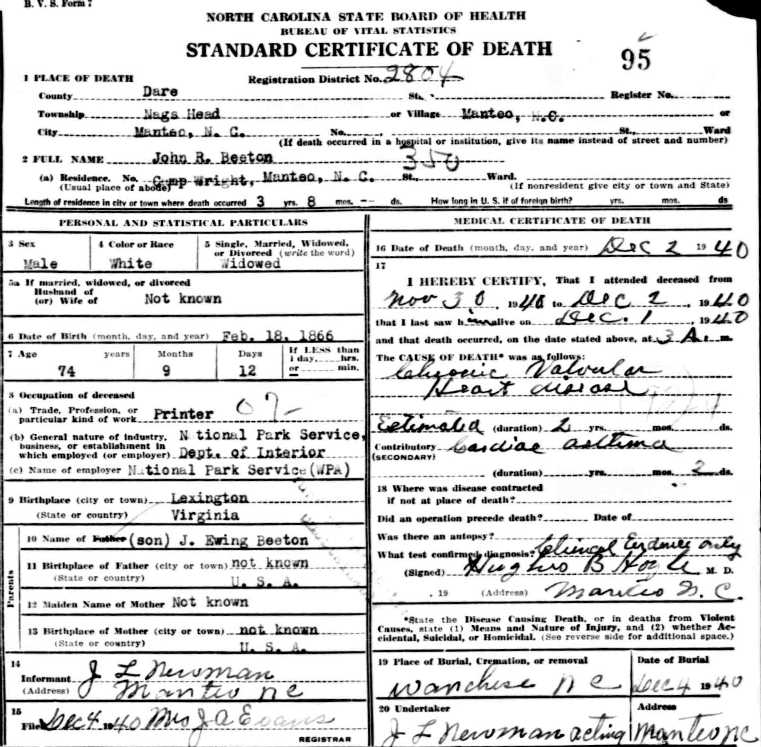 B. V. S. Form 7
NORTH CAROLINA STATE BOARD OF HEALTH
BUREAU OF VITAL STATISTICS
STANDARD CERTIFICATE OF DEATH
95
1 PLACE OF DEATH
Registration District No. 2804
County Dare St. Register No.
Township Nags Head or Village Manteo, N.C. or
City Manteo, N. C. No. St., Ward
(If death occurred in a hospital or institution, give its name instead of street and number)
2 FULL NAME John R. Beeton 350
(a) Residence. No. Camp Wright, Manteo, N. C. St., Ward.
(Usual place of abode) (If nonresident give city or town and State)
Length of residence in city or town where death occurred 3 yrs. 8 mos. -- ds. How long in U. S. if of foreign birth? yrs. mos. ds
PERSONAL AND STATISTICAL PARTICULARS
3 Sex
Male
4 Color or Race
White
5 Single, Married, Widowed,
or Divorced (write the word)
Widowed
5a If married, widowed, or divorced
Husband of
(or) Wife of Not known
6 Date of Birth (month, day, and year) Feb. 18, 1866
7 Age years Months Days If LESS than
1 day, hrs.
74 9 12 or min.
8 Occupation of deceased
(a) Trade, Profession, or
particular kind of work Printer 07-
(b) General nature of industry,
business, or establishment in
which employed (or employer)
National Park Service,
Dept. of Interior
(c) Name of employer National Park Service(WPA)
9 Birthplace (city or town) Lexington
(State or country) Virginia
Parents
10 Name of Father (son) J. Ewing Beeton
11 Birthplace of Father (city or town) not known
(State or country) U. S. A.
12 Maiden Name of Mother Not known
13 Birthplace of Mother (city or town) not known
(State or country) U. S. A.
14
Informant J L Newman
(Address) Manteo NC
15
Filed Dec 4, 1940 Mrs J A Evans
REGISTRAR
MEDICAL CERTIFICATE OF DEATH
16 Date of Death (month, day, and year) Dec 2 1940
17
I HEREBY CERTIFY, That I attended deceased from
Nov 30, 1940 to Dec 2, 1940
that I last saw him alive on Dec. 1, 1940
and that death occurred, on the date stated above, at 3 A. m.
The CAUSE OF DEATH* was as follows:
Chronic Valvular
Heart disease
Estimated (duration) 2 yrs. mos. ds.
Contributory Cardiac asthma
(SECONDARY)
(duration) yrs. mos. 2 ds.
18 Where was disease contracted
if not at place of death?
Did an operation precede death? Date of
Was there an autopsy?
What test confirmed diagnosis? Clinical Evidence only
(Signed) B Hoyle M. D.
, 19 (Address) Manteo N. C.
*State the Disease Causing Death, or in deaths from Violent
Causes, state (1) Means and Nature of Injury, and (2) whether Ac-
cidental, Suicidal, or Homicidal. (See reverse side for additional space.)
19 Place of Burial, Cremation, or removal
Wanchese N C
Date of Burial
Dec 4 1940
20 Undertaker
J L Newman acting Manteo NC